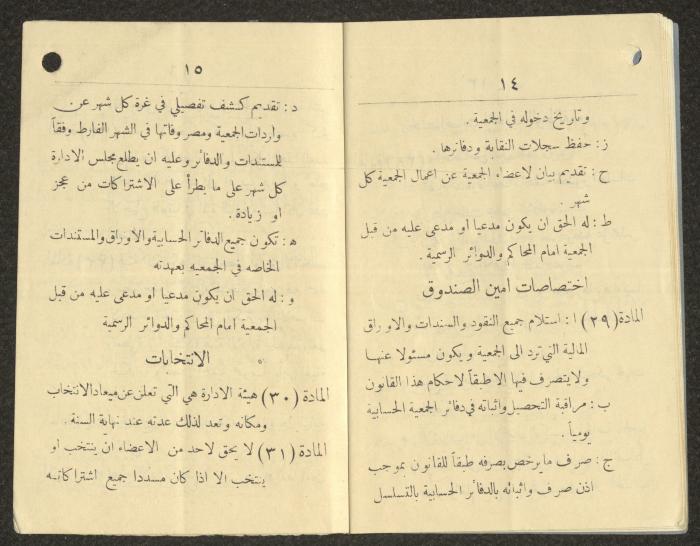 ١٤
وتاريخ دخوله في الجمعية .
ز : حفظ سجلات النقابة ودفاترها .
ح : تقديم بيان لاعضاء الجمعية عن اعمال الجمعية كل
شهر .
ط : له الحق ان يكون مدعيا او مدعى عليه من قبل
الجمعية امام المحاكم والدوائر الرسمية .
اختصاصات امين الصندوق
المادة (٢٩) ا : استلام جميع النقود والسندات والاوراق
المالية التي ترد الى الجمعية ويكون مسئولا عنها
ولا يتصرف فيها الا طبقاً لاحكام هذا القانون
ب : مراقبة التحصيل واثباته في دفاتر الجمعية الحسابية
يومياً .
ج : صرف ما يرخص بصرفه طبقاً للقانون بموجب
اذن صرف واثباته بالدفاتر الحسابية بالتسلسل
١٥
د : تقديم كشف تفصيلي في غرة كل شهر عن
واردات الجمعية ومصروفاتها في الشهر الفارط وفقاً
للمستندات والدفاتر وعليه ان يطلع مجلس الادارة
كل شهر على ما يطرأ على الاشتراكات من عجز
او زيادة .
ه : تكون جميع الدفاتر الحسابية والاوراق والمستندات
الخاصه في الجمعيه بعهدته
و : له الحق ان يكون مدعيا او مدعى عليه من قبل
الجمعية امام المحاكم والدوائر الرسمية
الانتخابات
المادة (٣٠) هيئة الادارة هي التي تعلن عن ميعاد الانتخاب
ومكانه وتعد لذلك عدته عند نهاية السنة .
المادة (٣١) لا يحق لاحد من الاعضاء ان ينتخب او
ينتخب الا اذا كان مسددا جميع اشتراكاته